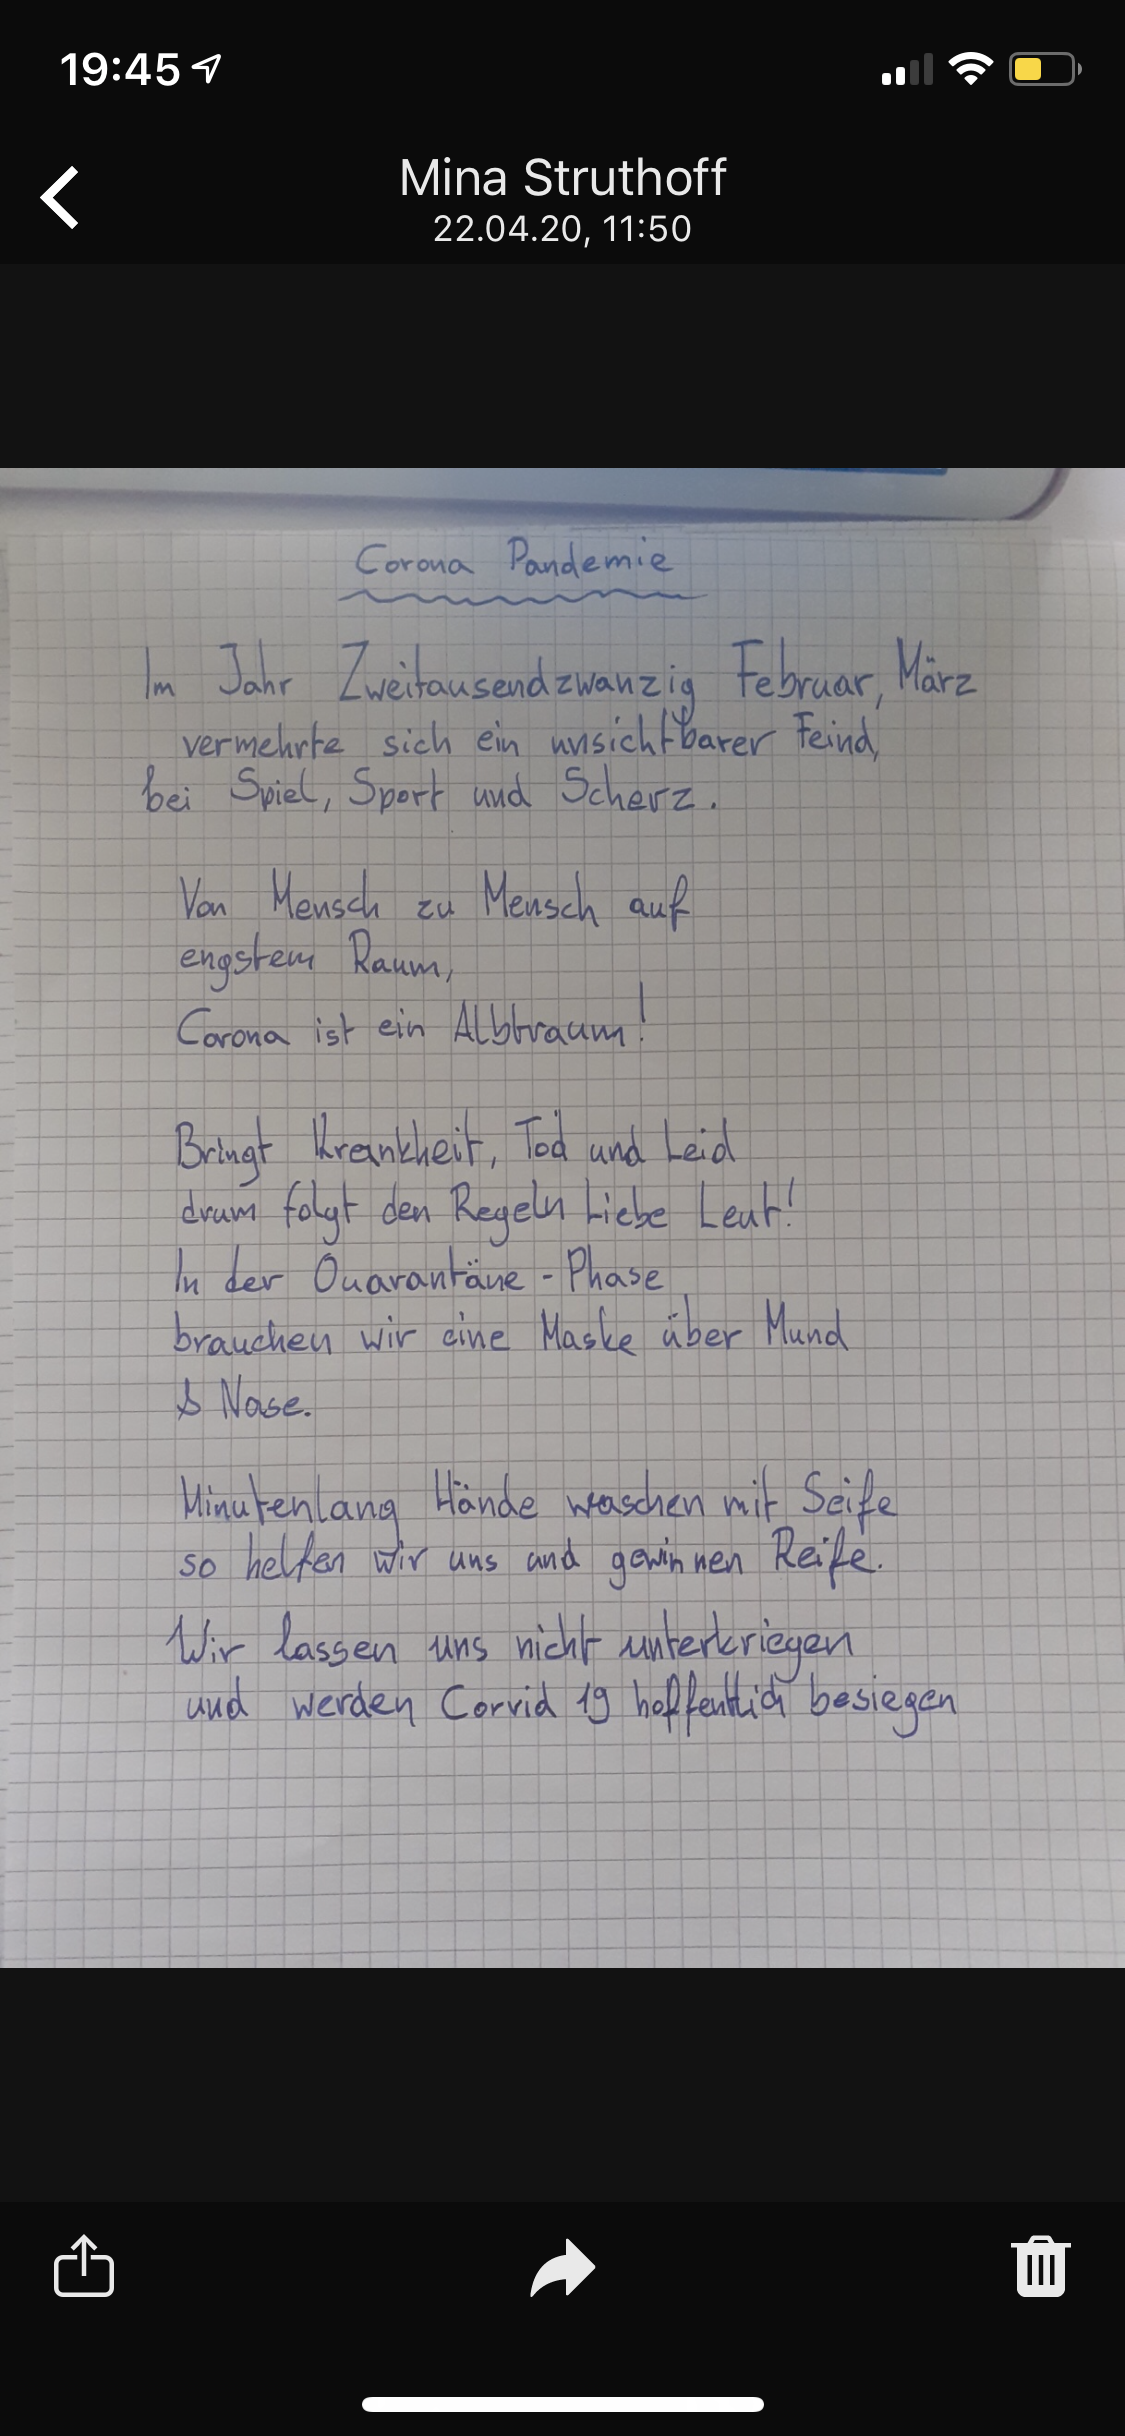 19:45
Mina Struthoff
22.04.20, 11:50
Corona Pandemie
Im Jahr Zweitausendzwanzig Februar, März
vermehrte sich ein unsichtbarer Feind,
bei Spiel, Sport und Scherz.
Von Mensch zu Mensch auf
engstem Raum,
Corona ist ein Albtraum!
Bringt Krankheit, Tod und Leid
drum folgt den Regeln Liebe Leut!
In der Quarantäne - Phase
brauchen wir eine Maske über Mund
& Nase.
Minutenlang Hände waschen mit Seife
so helfen wir uns und gewinnen Reife.
Wir lassen uns nicht unterkriegen
und werden Corvid 19 hoffentlich besiegen